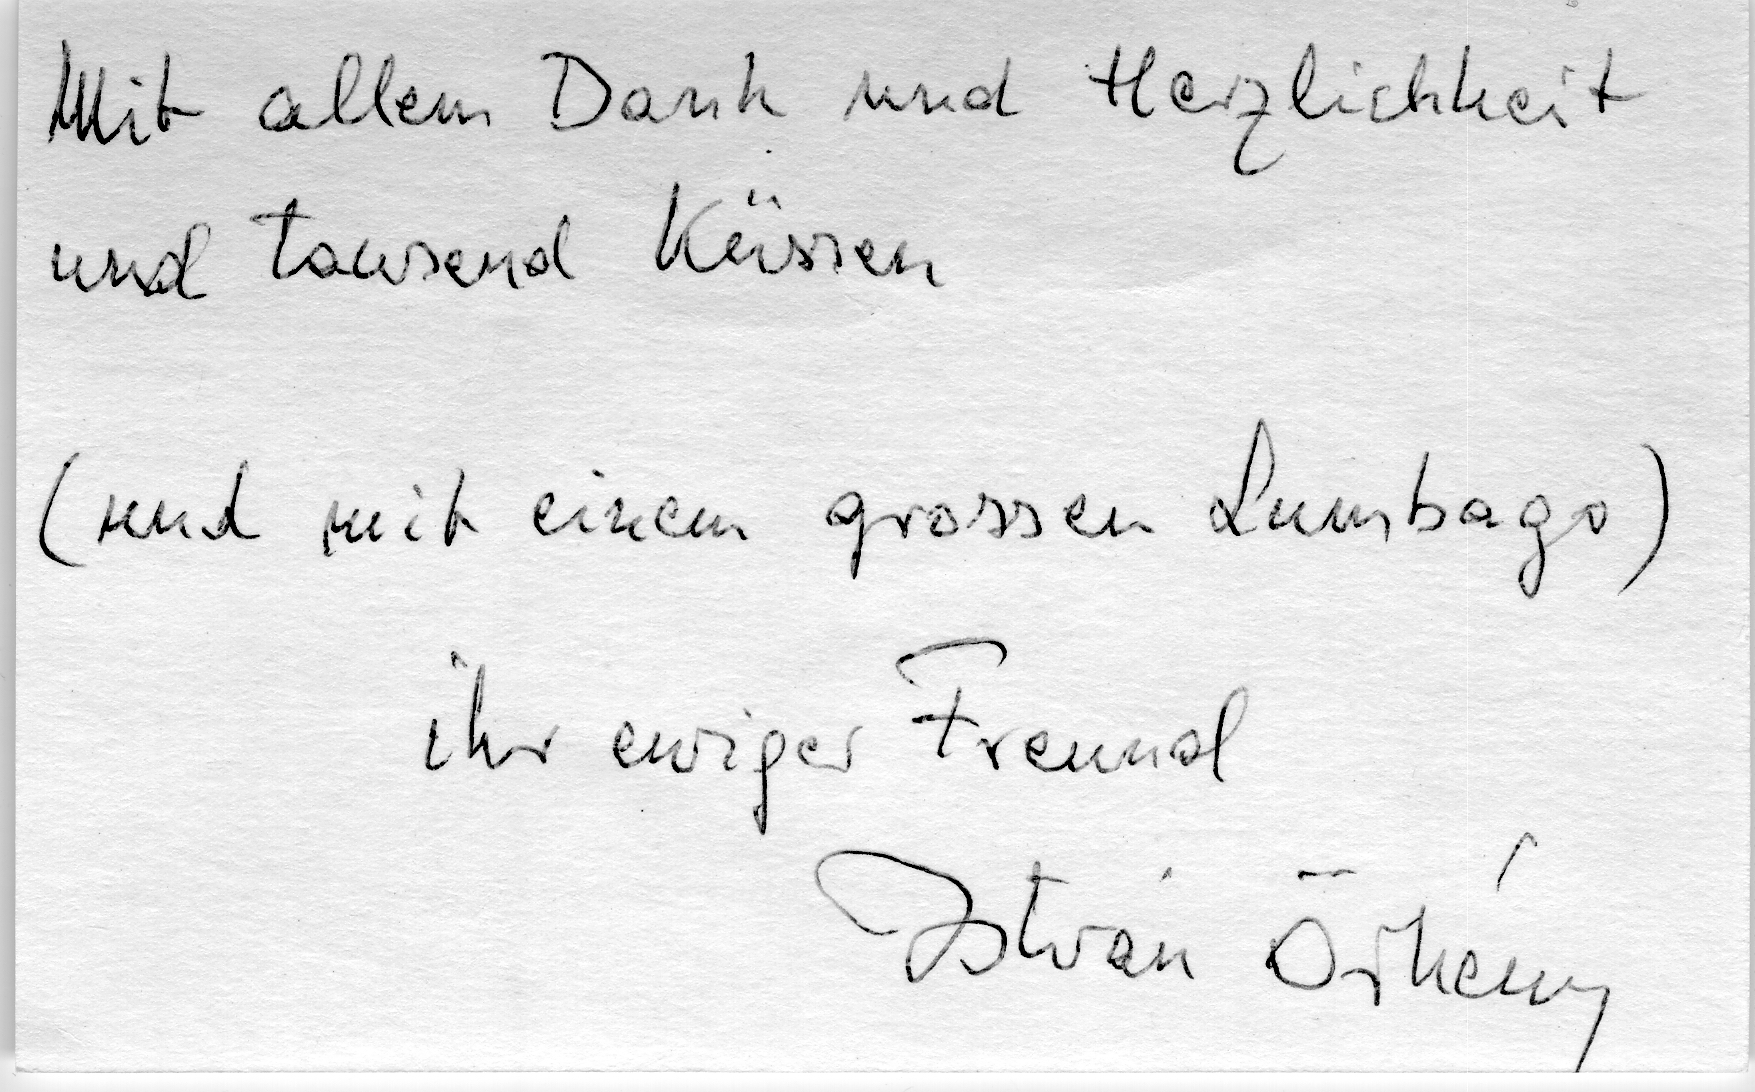 Mit allem Dank und Herzlichkeit
und tausend Küssen
(und mit einem grossen Lumbago)
ihr ewiger Freund
István Örkény